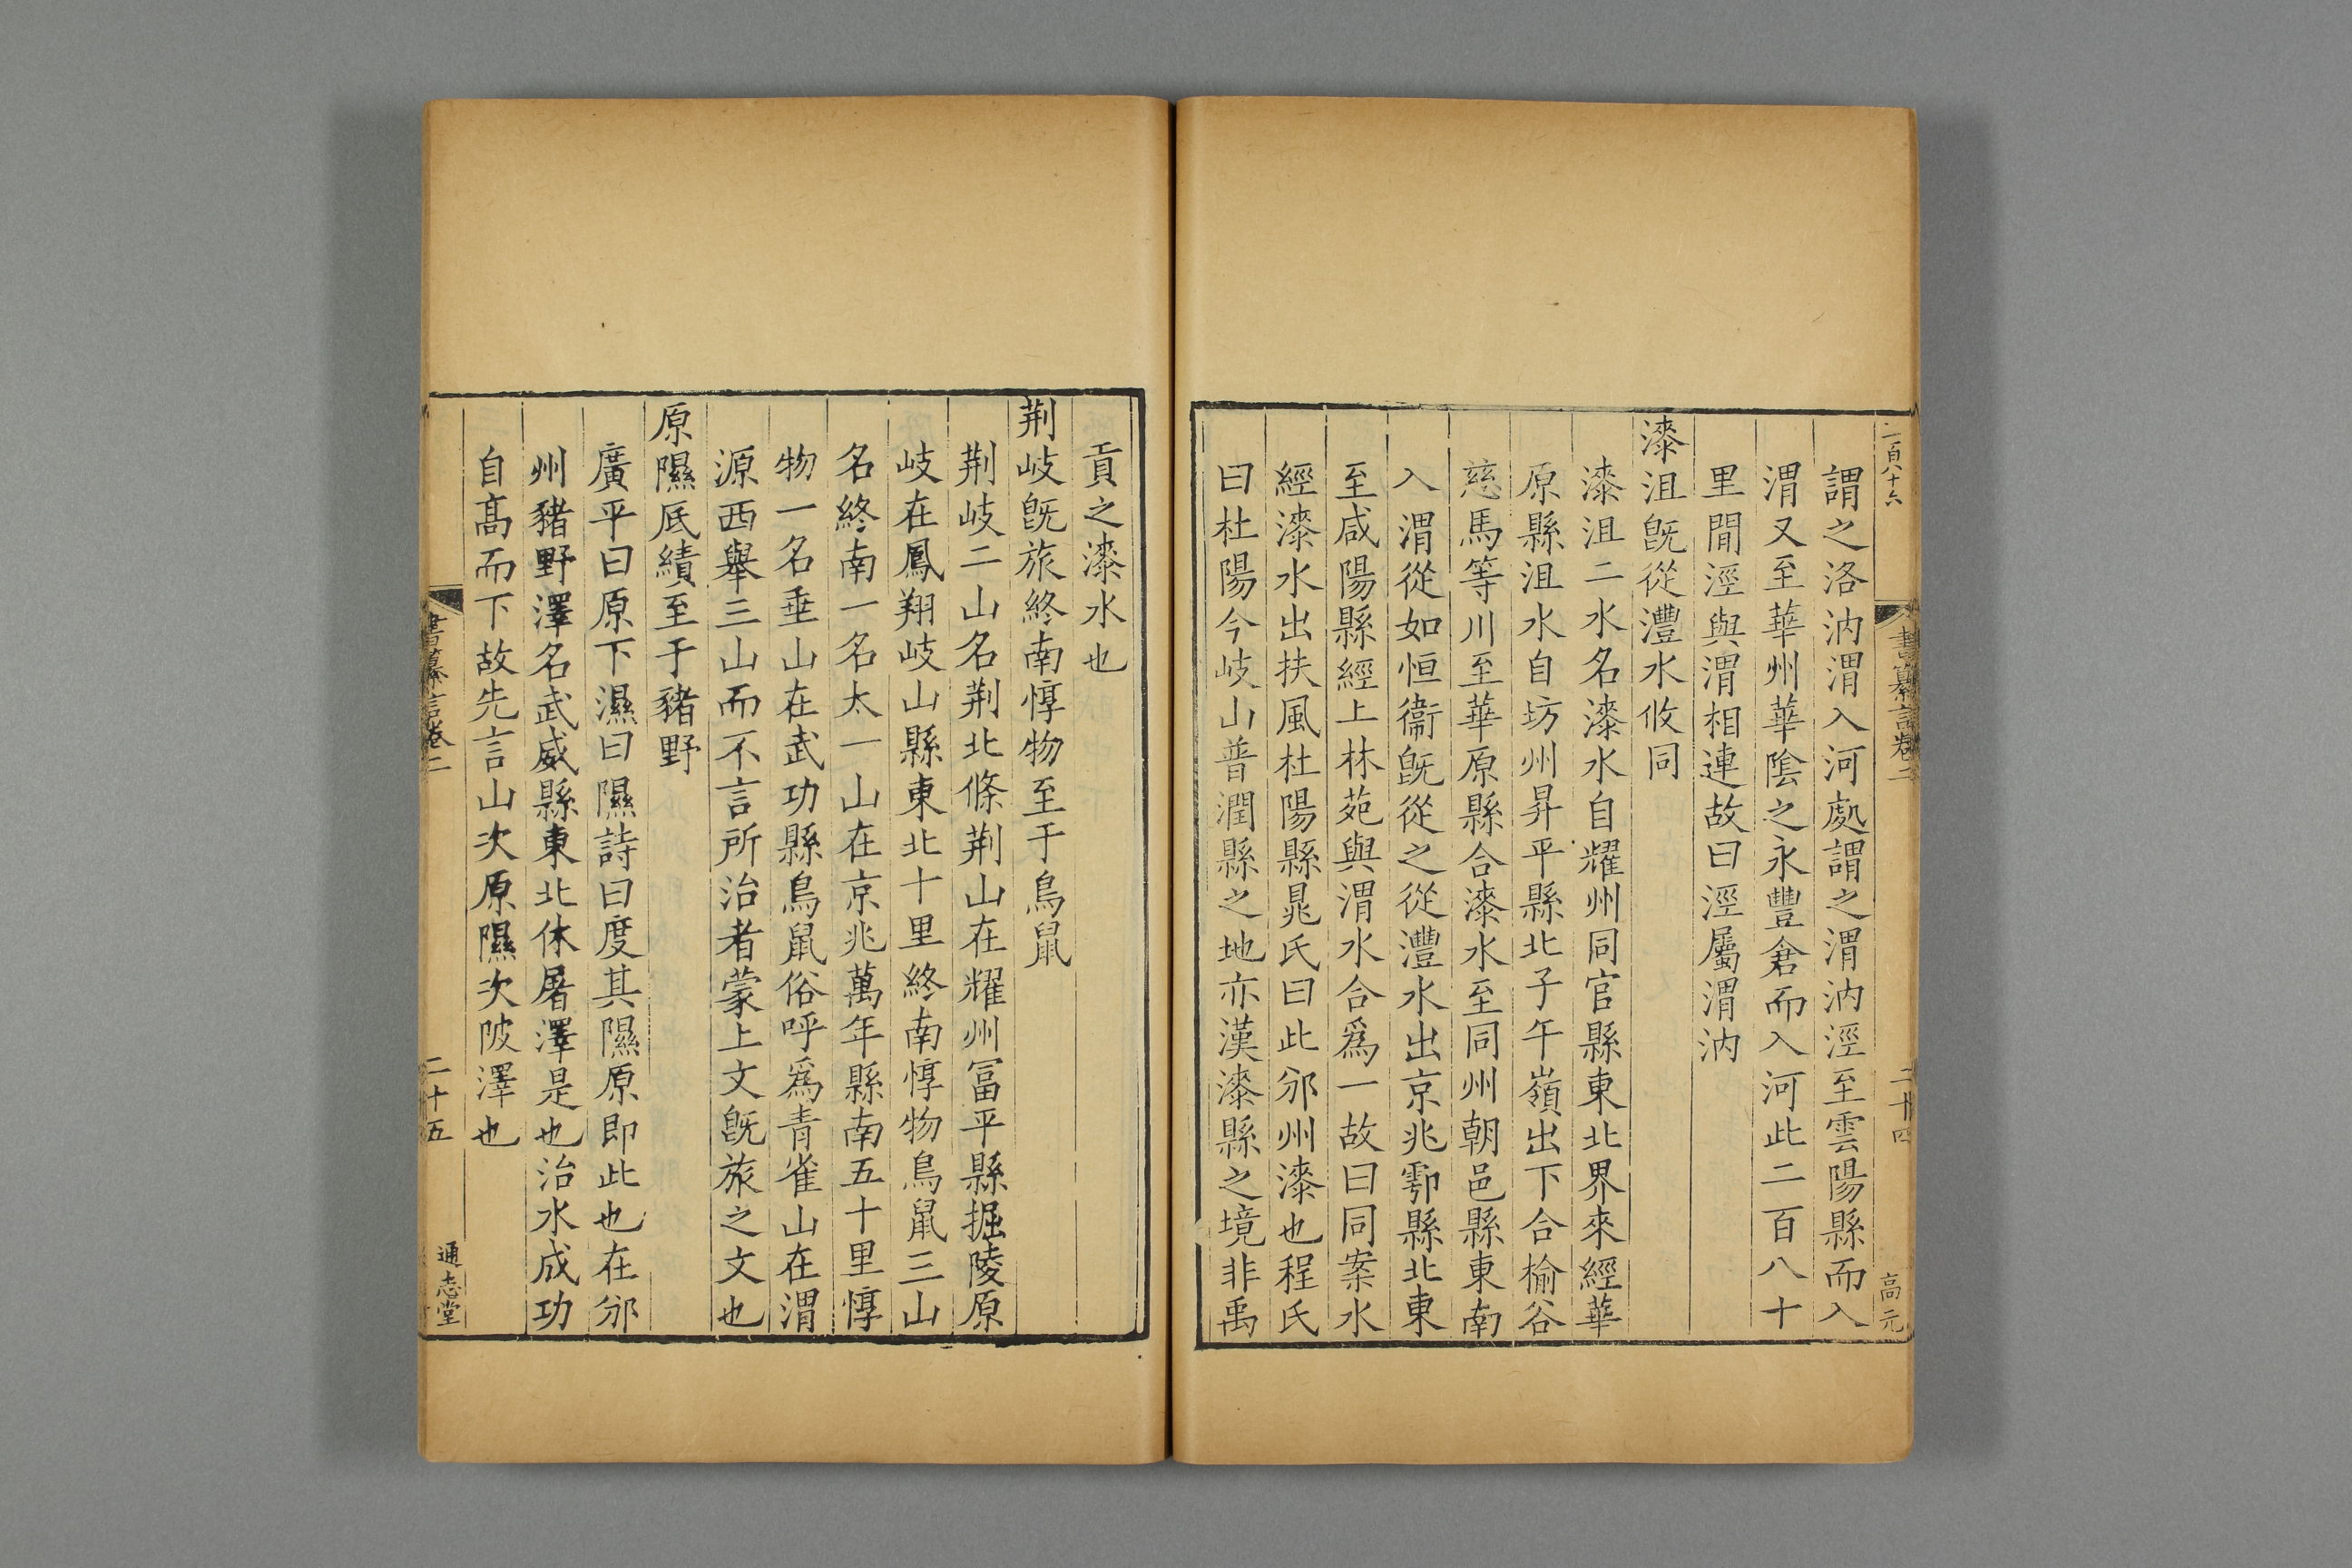 二百八十六
書纂言卷二
二十四
高元
謂之洛汭渭入河處謂之渭汭涇至雲陽縣而入
渭又至華州華陰之永豐倉而入河此二百八十
里間涇與渭相連故曰涇屬渭汭
漆沮旣從灃水攸同
漆沮二水名漆水自耀州同官縣東北界來經華
原縣沮水自坊州昇平縣北子午嶺出下合榆谷
慈馬等川至華原縣合漆水至同州朝邑縣東南
入渭從如恒衞旣從之從灃水出京兆鄠縣北東
至咸陽縣經上林苑與渭水合爲一故曰同案水
經漆水出扶風杜陽縣晁氏曰此邠州漆也程氏
曰杜陽今岐山普潤縣之地亦漢漆縣之境非禹
貢之漆水也
荆岐旣旅終南惇物至于鳥鼠
荆岐二山名荆北條荆山在耀州冨平縣掘陵原
岐在鳳翔岐山縣東北十里終南惇物鳥鼠三山
名終南一名太一山在京兆萬年縣南五十里惇
物一名垂山在武功縣鳥鼠俗呼爲青雀山在渭
源西舉三山而不言所治者蒙上文旣旅之文也
原隰厎績至于豬野
廣平曰原下濕曰隰詩曰度其隰原即此也在邠
州豬野澤名武威縣東北休屠澤是也治水成功
自髙而下故先言山次原隰次陂澤也
書纂言卷二
二十五
通志堂